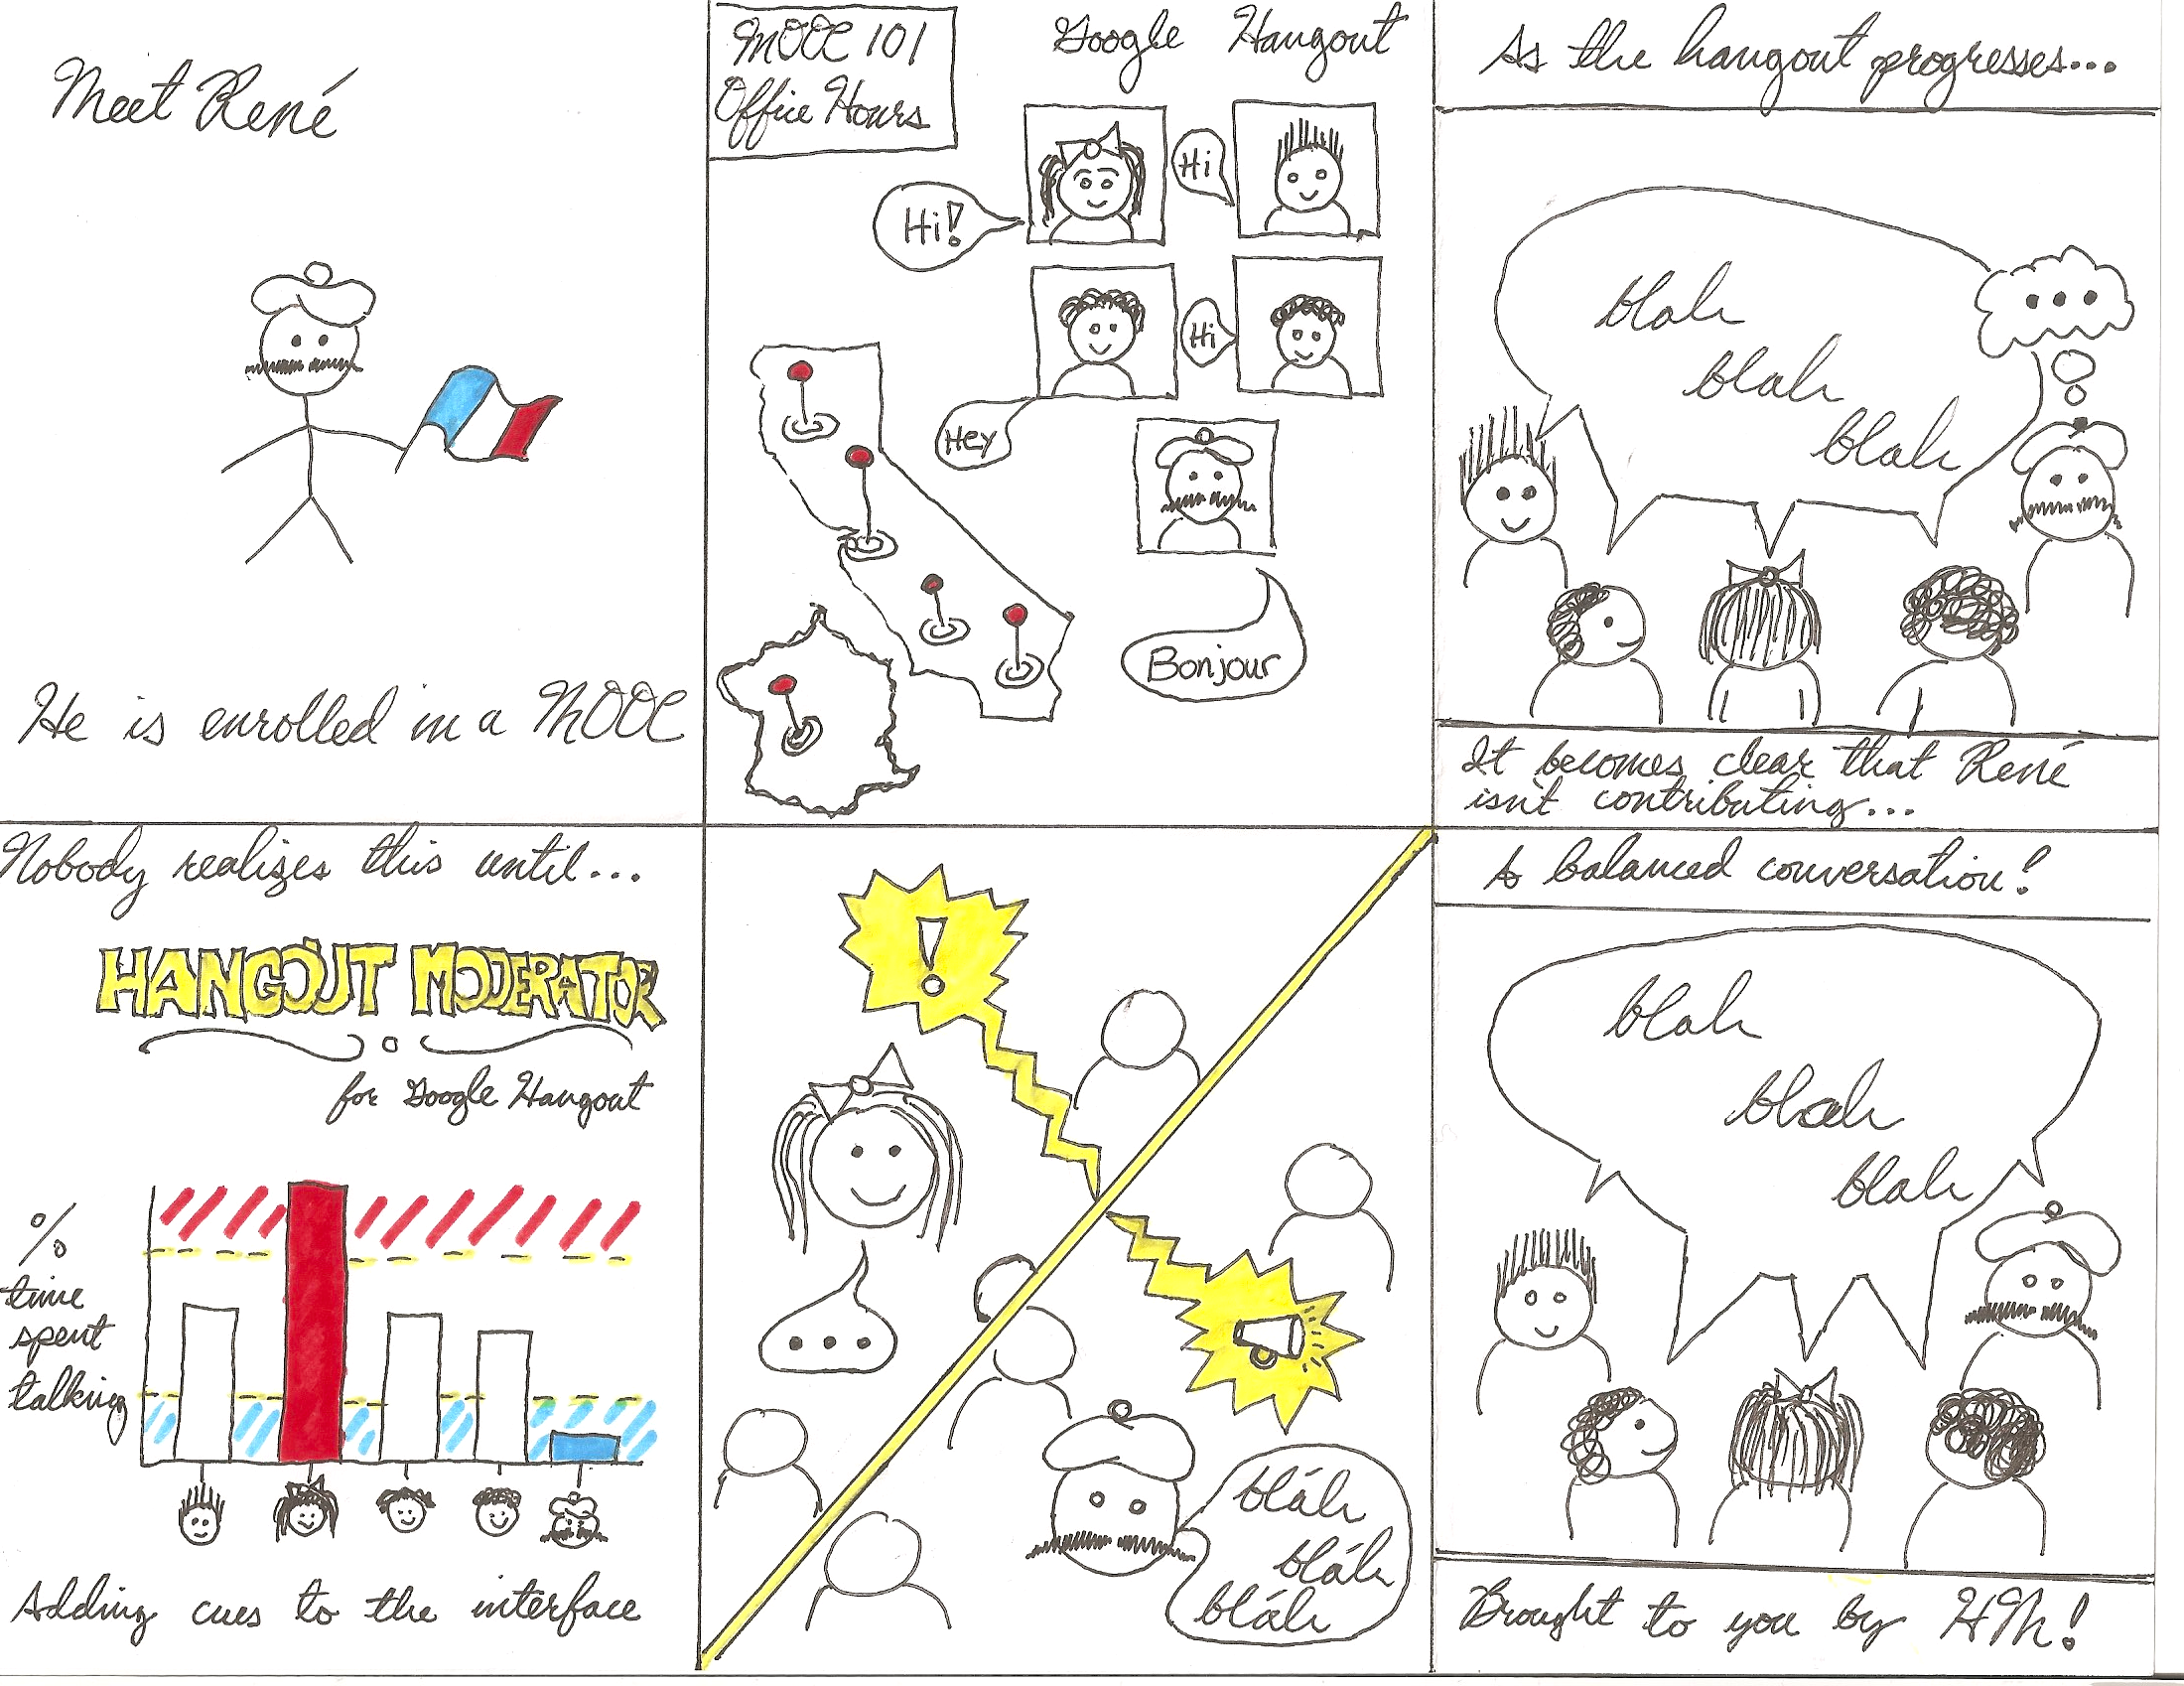 Meet René
He is enrolled in a MOOC
MOOC 101
Office Hours
Google Hangout
Hi!
Hi
Hey
Hi
Bonjour
As the hangout progresses...
blah
blah
blah
...
It becomes clear that René
isn't contributing...
Nobody realizes this until...
HANGOUT MODERATOR
for Google Hangout
%
time
spent
talking
Adding cues to the interface
!
...
bláh
bláh
bláh
A balanced conversation!
blah
blah
blah
Brought to you by HM!